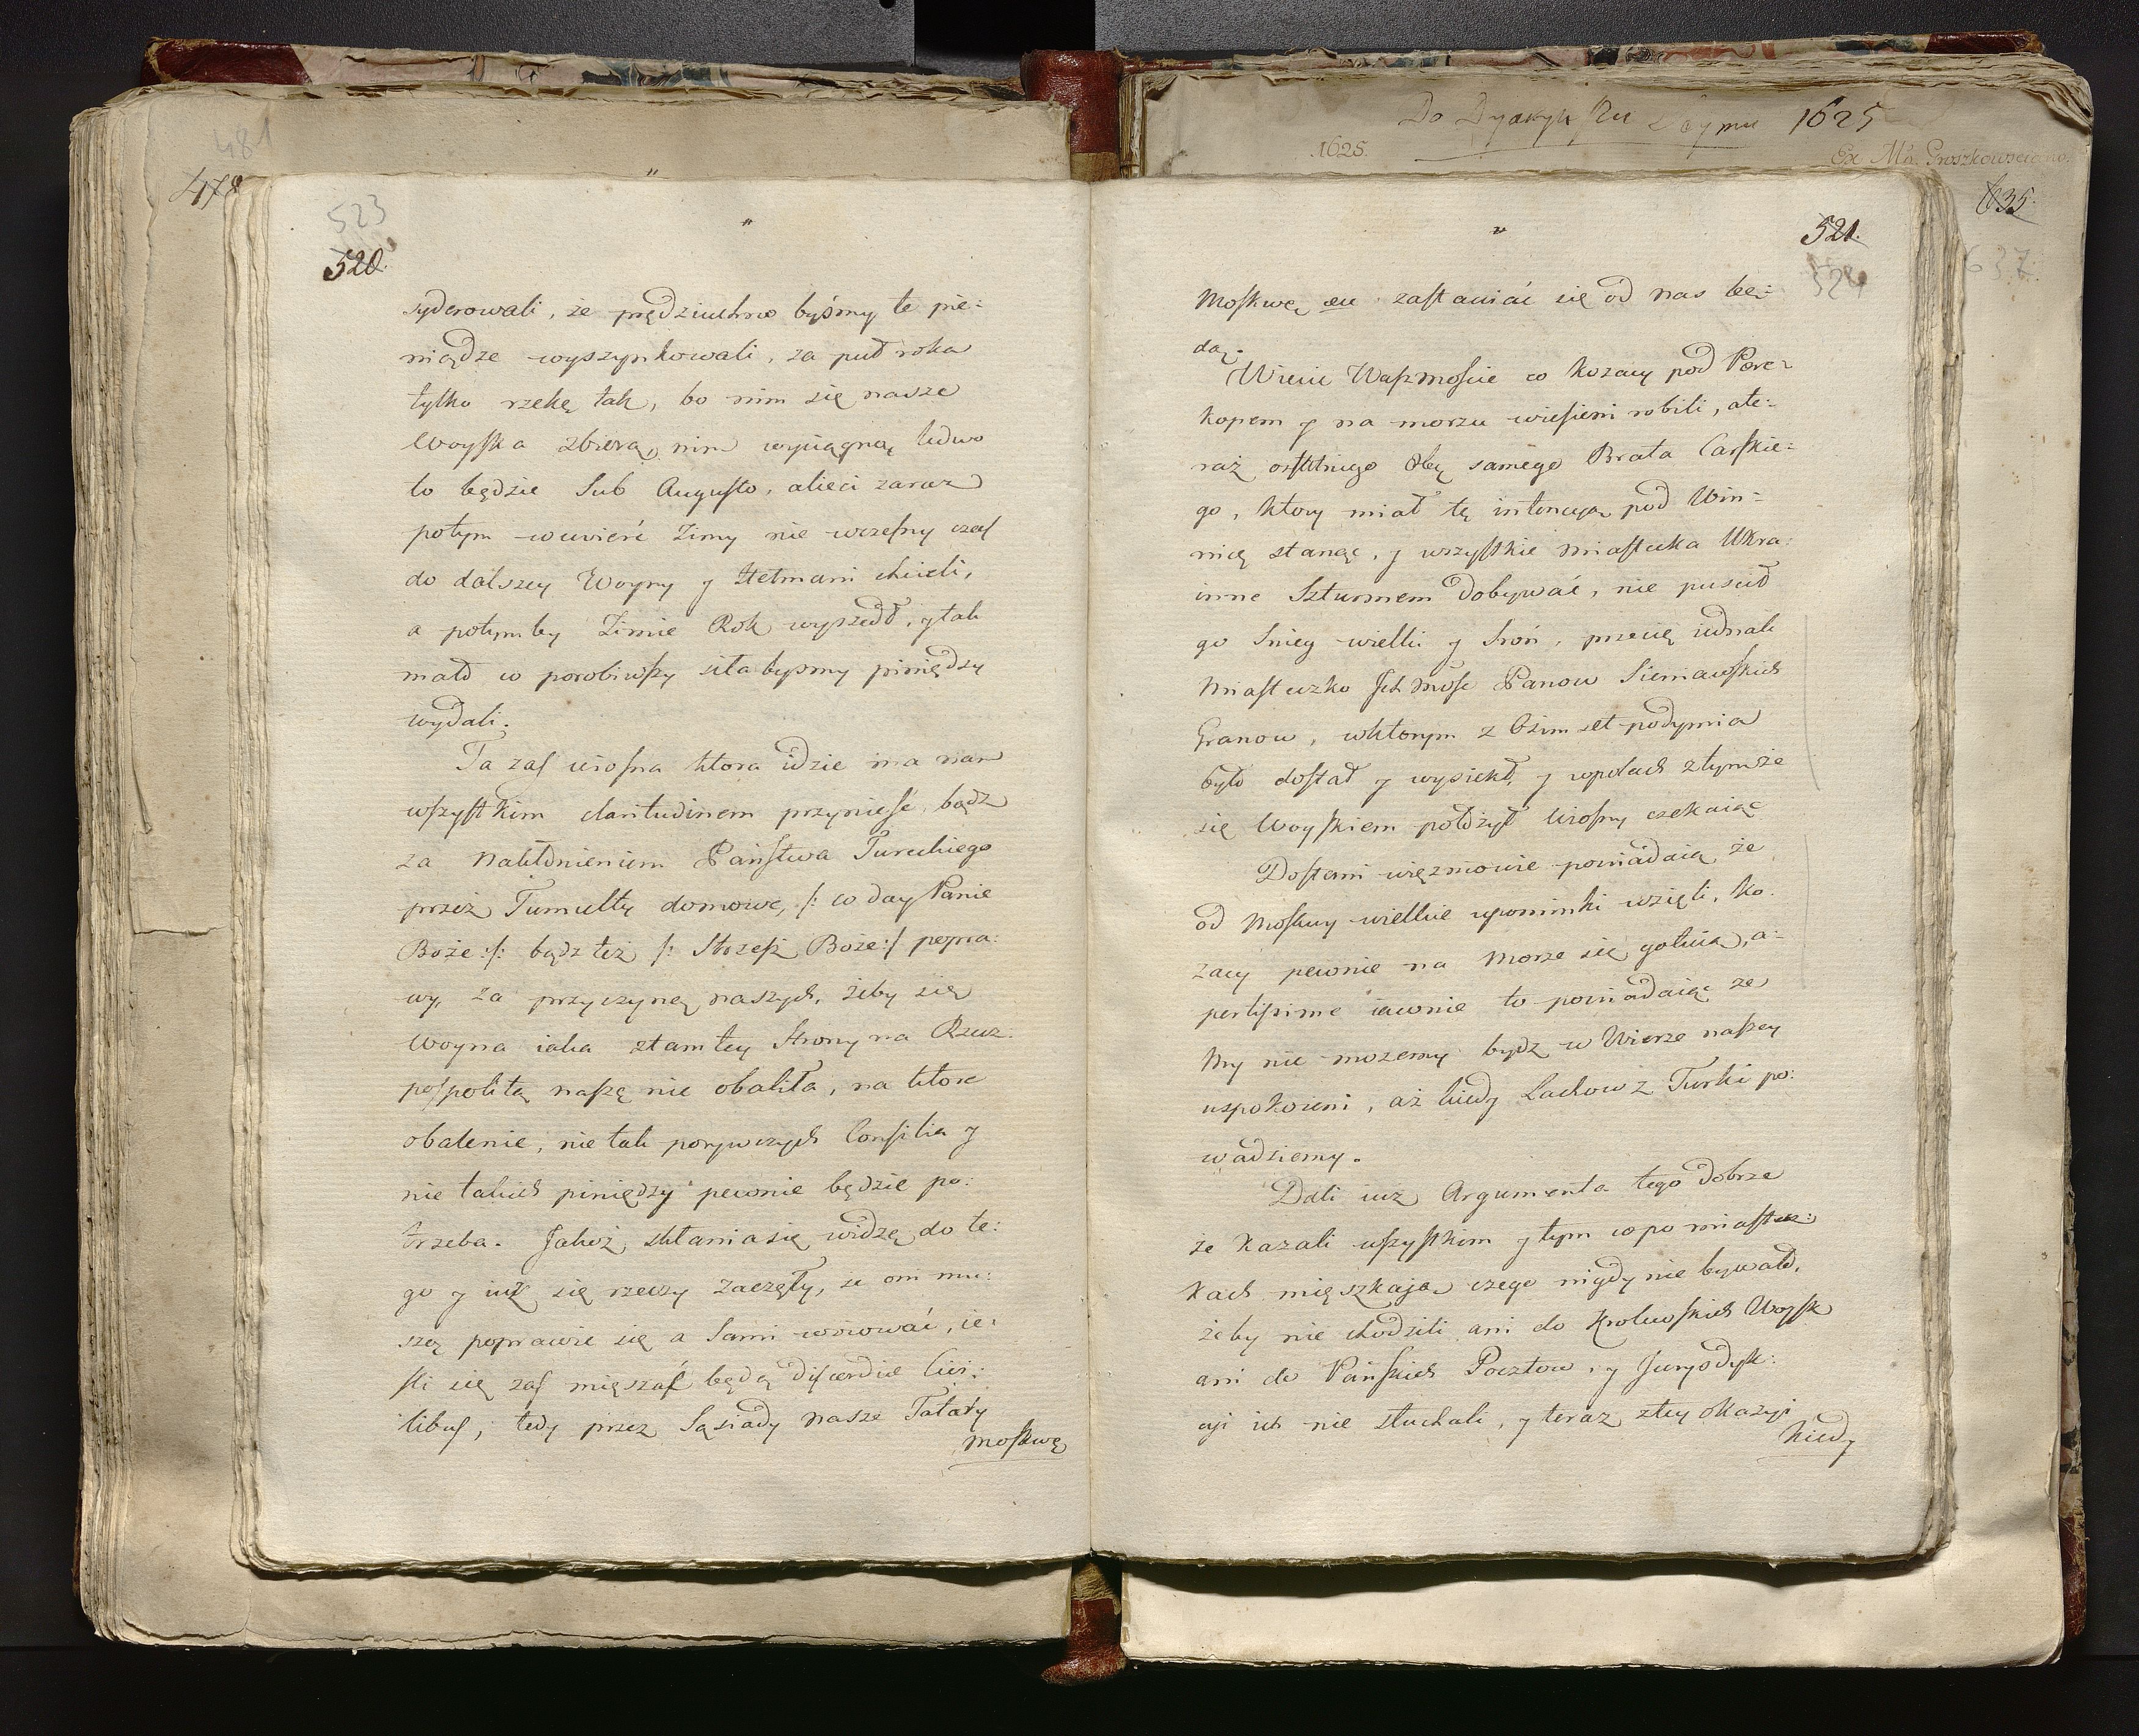 481
478
523
520.
syderowali, że prędziuchno byśmy te pie:
niądze wyszynkowali, za puł roka
tylko rzekę tak, bo nim się nasze
Woyska zbiorą, nim wyciągną ledwo
to będzie Sub Augusto, alieci zaraz
potym wuwierć Zimy nie wczesny czas
do dalszey Woyny y Hetmani chcieli,
a potymby Zimie Rok wyszedł, y tak
mało co porobiwszy siłabysmy piniędzy
wydali.
Ta zaś wiosna ktora idzie ma nam
wszystkim claritudinem przynieść, bądz
za nakłonieniem Państwa Tureckiego
przez Tumulty domowe, /: co day Panie
Boże :/: bądz też /: Strzesz Boże :/ popra:
wy, za przyczyną naszych, żeby się
Woyna iaka ztamtey Strony na Rzecz:
pospolitą naszę nie obaliła, na ktore
obalenie, nie tak porywczych Consilia y
nie takich piniędzy pewnie będzie po:
trzeba. Jakoż skłania się widzę do te:
go y iuż się rzeczy zaczęły, że oni mu:
szą poprawić się a Sami wiiować, ie:
śli się zaś mięszać będą discordie Civi:
libus, tedy przez Sąsiady nasze Tatary
Moskwę
Do Dyaryuszu Seymu 1625
1625.
Ex Ms. Groszkowsciano.
635.
637.
521.
524
Moskwę zastawiać się od nas bę:
dą.
Wiecie Waszmoście co Kozacy pod Pere:
kopem y na morzu wiesieni robili, ate:
raż ordę samego Brata Carskie:
go, ktory miał tę intencyą pod Win:
nicę stanąć, y wszystkie miastecka Ukra:
inne Szturmem dobywać, nie puscił
go Snieg wielki y Sroń, przecię iednak
Miasteczko Ich Mość Panow Sieniawskich
Granow, wktorym z Ośim set podymia
było dostał y wysiekł, y wpolach ztymże
się Woyskiem połozył Wiosny czekaiąc
Dostani więzniowie powiadaią, że
od Moskwy wielkie upominki wzięli, Ko:
zacy pewnie na Morze się gotuią, a:
pertissime iawnie to powiadaią, że
My nie mozemy bydz w Wierze naszey
uspokoieni, aż kiedy Lachow z Turki po:
wadziemy.
Dali iuz Argumenta tego dobrze
że kazali wszystkim y tym co po miastecz:
kach mięszkaią czego nigdy nie bywało,
żeby nie chodzili ani do Krolewskich Woysk
ani do Pańskich Pocztow, y Juryzdyk:
cyi ich nie słuchali, y teraz ztey okazyi
kiedy